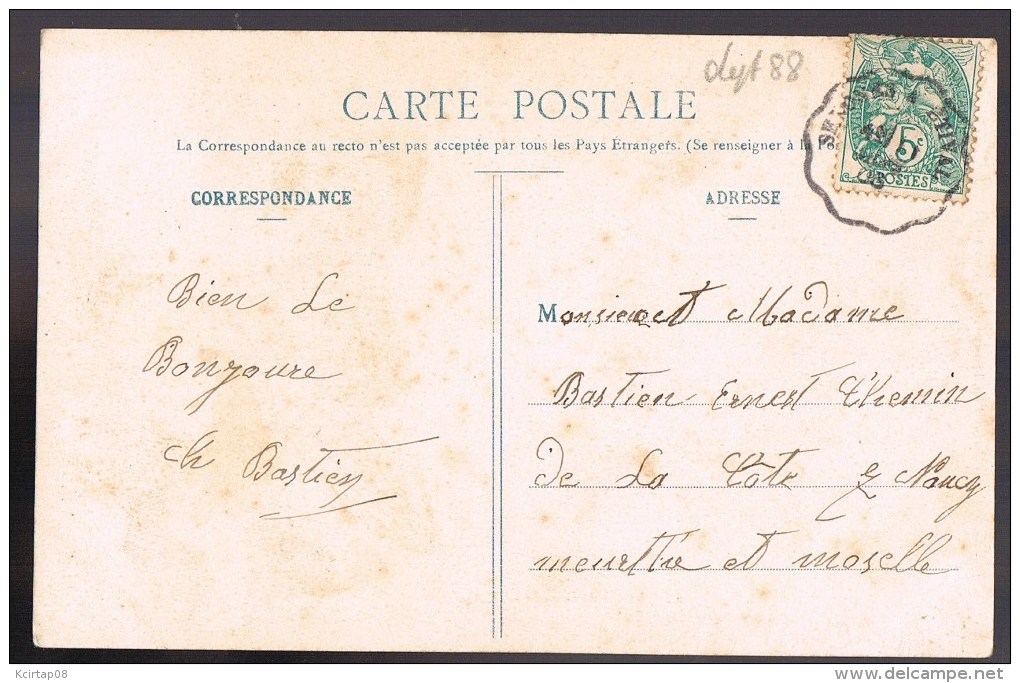 dept 88
CARTE POSTALE
La Correspondance au recto n'est pas acceptée par tous les Pays Étrangers. (Se renseigner à la Po
5c
POSTES
CORRESPONDANCE
ADRESSE
Bien Le
Bonjoure
Ch Bastien
Monsieur et Madame
Bastien Ernest Chemin
de La Côte Nancy
meurthe et moselle
Kcirtap08
delcampe.net